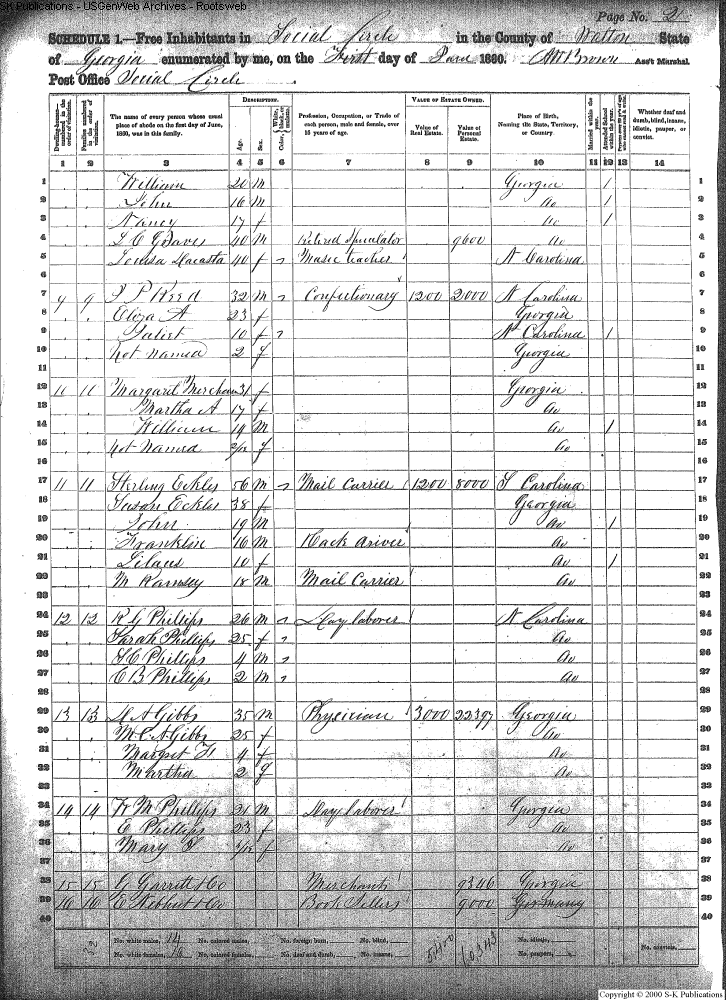 S-K Publications - USGenWeb Archives - Rootsweb
Page No. 2
SCHEDULE 1.—Free Inhabitants in Social Circle in the County of Walton State
of Georgia enumerated by me, on the First day of June 1860. Ass't Marshal.
Post Office Social Circle
Dwelling-houses numbered in the order of visitation.
Families numbered in the order of visitation.
The name of every person whose usual place of abode on the first day of June, 1860, was in this family.
DESCRIPTION.
Age.
Sex.
Color, White, black, or mulatto.
Profession, Occupation, or Trade of each person, male and female, over 15 years of age.
VALUE OF ESTATE OWNED.
Value of Real Estate.
Value of Personal Estate.
Place of Birth, Naming the State, Territory, or Country.
Married within the year.
Attended School within the year.
Persons over 20 years of age who cannot read & write.
Whether deaf and dumb, blind, insane, idiotic, pauper, or convict.
1 2 3 4 5 6 7 8 9 10 11 12 13 14
1 William 20 M Georgia / 1
2 John 16 M Do / 2
3 Nancy 17 f Do / 3
4 Graves 40 M Retired Speculator 9600 Do 4
5 Louisa 40 f Music teacher N Carolina 5
6 6
7 9 9 Reed 32 M Confectionary 1200 2000 N Carolina 7
8 Eliza A 23 f Georgia 8
9 10 f N Carolina / 9
10 Not Named 2 f Georgia 10
11 11
12 Margaret 31 f Georgia 12
13 Martha A 17 f Do 13
14 William 14 M Do / 14
15 Not Named 2/12 f Do 15
16 16
17 11 11 Sterling Eckles 56 M Mail Carrier 1200 8000 S Carolina 17
18 Susan Eckles 38 f Georgia 18
19 John 19 M Do / 19
20 Franklin 16 M Hack driver Do 20
21 10 f Do / 21
22 M Ramsey 18 M Mail Carrier Do 22
23 23
24 12 12 R G Phillips 26 M Day laborer N Carolina 24
25 Sarah Phillips 25 f Do 25
26 Phillips 4 M Do 26
27 C B Phillips 2 M Do 27
28 28
29 13 13 Gibbs 35 M Physician 3000 22397 Georgia 29
30 M C A Gibbs 25 f Do 30
31 Margret 4 f Do 31
32 Martha 2 f Do 32
33 33
34 14 14 M Phillips 21 M Day laborer Georgia 34
35 E Phillips 23 f Do 35
36 Mary f Do 36
37 37
38 15 15 G Garrett & Co Merchants 9346 Georgia 38
39 16 16 & Co Book Sellers 9000 Germany 39
40 40
No. white males, 14 No. colored males, No. foreign born, No. blind, No. idiotic, No. convicts,
No. white females, No. colored females, No. deaf and dumb, No. insane, No. paupers,
Copyright © 2000 S-K Publications